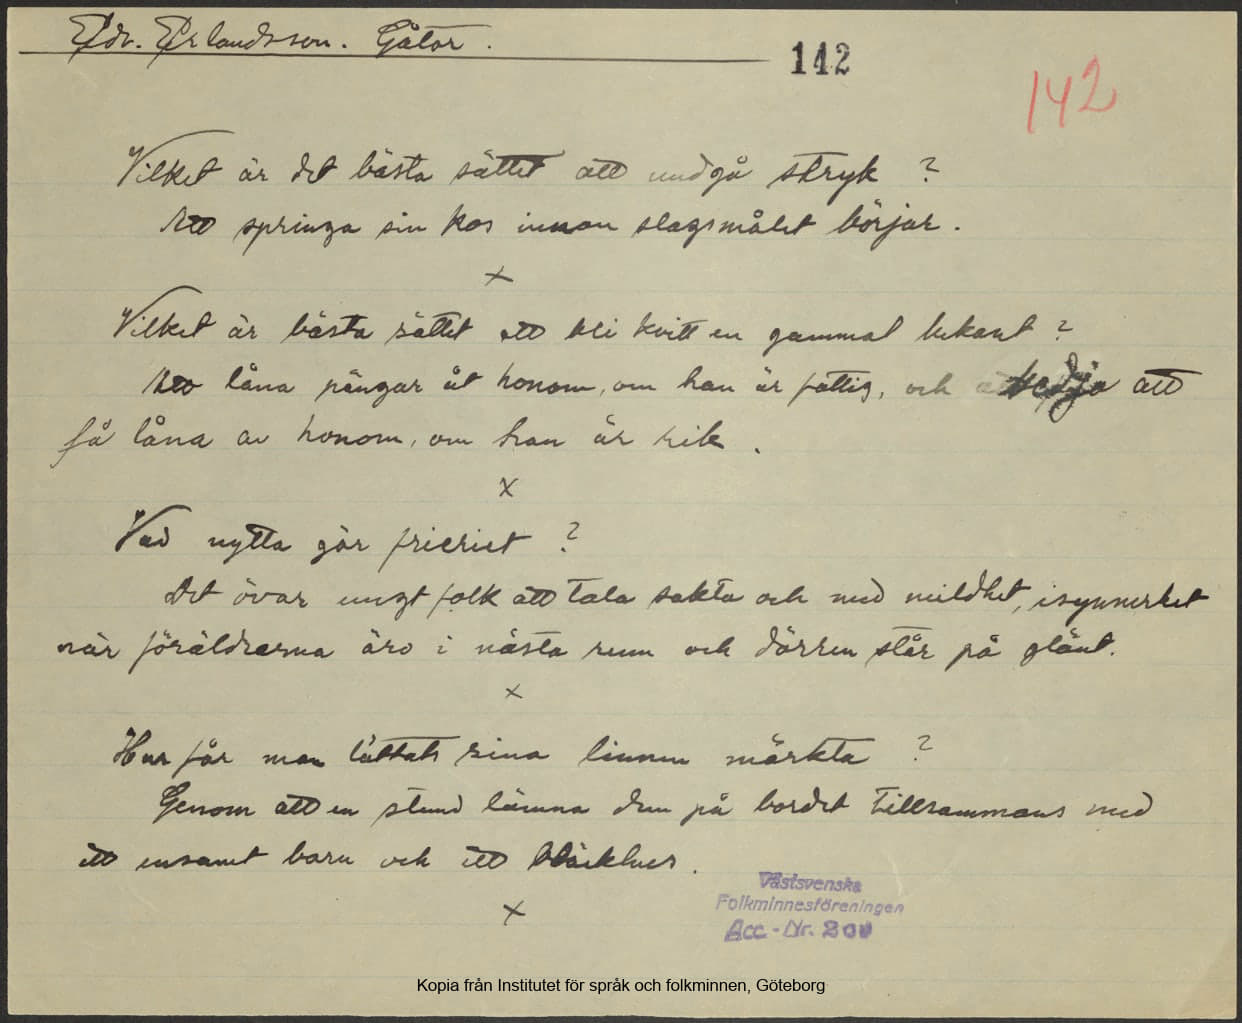 Edv. Erlandsson. Gåtor.
142
142
Vilket är det bästa sättet att undgå stryk ?
Att springa sin kos innan slagsmålet börjar.
x
Vilket är bästa sättet att bli kvitt en gammal bekant ?
Att låna pängar åt honom, om han är fattig, och bedja att
få låna av honom, om han är rik .
x
Vad nytta gör frieriet ?
Det övar ungt folk att tala sakta och med mildhet, isynnerhet
när föräldrarna äro i nästa rum och dörren står på glänt.
x
Hur får man lättats sina linnen märkta ?
Genom att en stund lämna dem på bordet tillsammans med
ett ensamt barn och ett bläckhus .
x
Västsvenska
Folkminnesföreningen
Acc - Nr. 200
Kopia från Institutet för språk och folkminnen, Göteborg